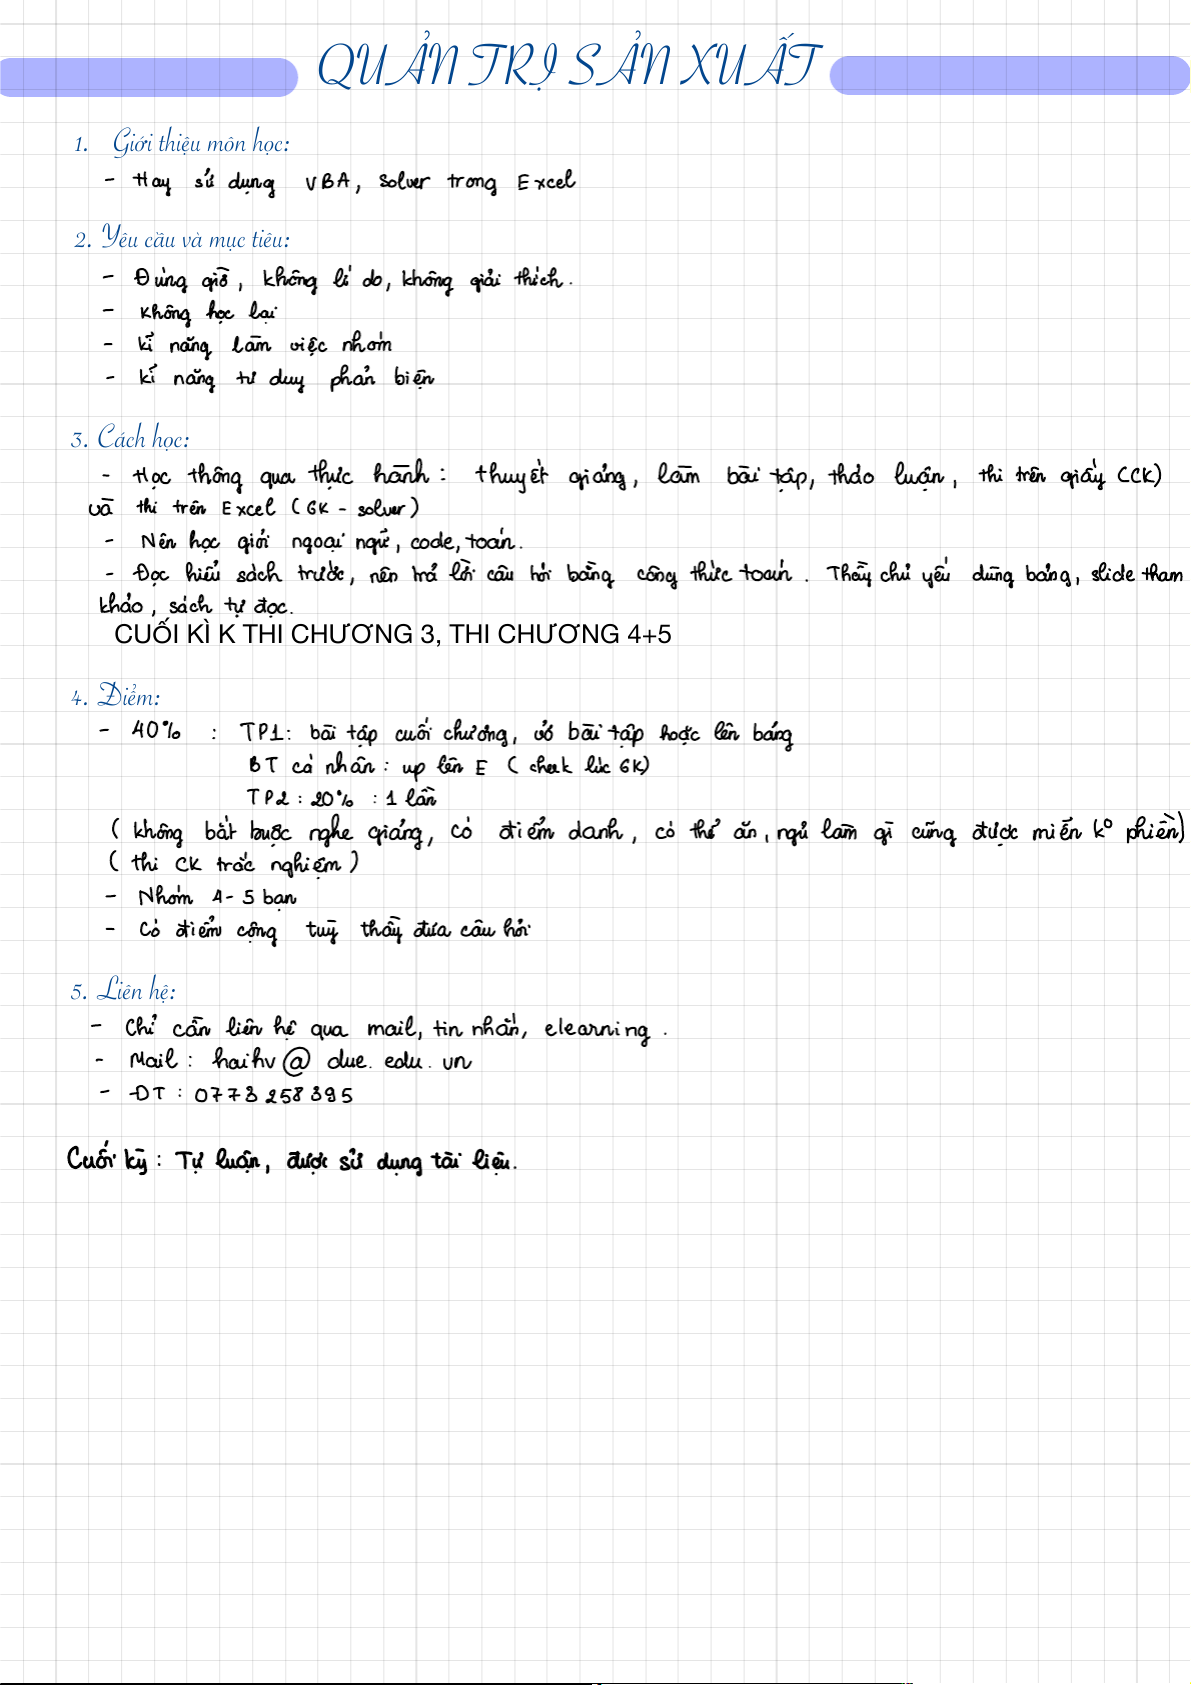 QUẢN TRỊ SẢN XUẤT
1. Giới thiệu môn học:
- Hay sử dụng VBA, Solver trong Excel
2. Yêu cầu và mục tiêu:
- Đúng giờ, không lí do, không giải thích.
- Không học lại
- kĩ năng làm việc nhóm
- kĩ năng tư duy phản biện
3. Cách học:
- Học thông qua thực hành: thuyết giảng, làm bài tập, thảo luận, thi trên giấy (CK)
và thi trên Excel (GK - solver)
- Nên học giỏi ngoại ngữ, code, toán.
- Đọc hiểu sách trước, nên trả lời câu hỏi bằng công thức toán. Thầy chủ yếu dùng bảng, slide tham
khảo, sách tự đọc.
CUỐI KÌ K THI CHƯƠNG 3, THI CHƯƠNG 4+5
4. Điểm:
- 40% : TP1: bài tập cuối chương, vở bài tập hoặc lên bảng
BT cá nhân: up lên E (check lúc GK)
TP2: 20% : 1 lần
(không bắt buộc nghe giảng, có điểm danh, có thể ăn, ngủ làm gì cũng được miễn k° phiền)
(thi CK trắc nghiệm)
- Nhóm 4-5 bạn
- Có điểm cộng tuỳ thầy đưa câu hỏi
5. Liên hệ:
- Chỉ cần liên hệ qua mail, tin nhắn, elearning.
- Mail: haihv@due.edu.vn
- ĐT: 0773258395
Cuối kỳ: Tự luận, được sử dụng tài liệu.